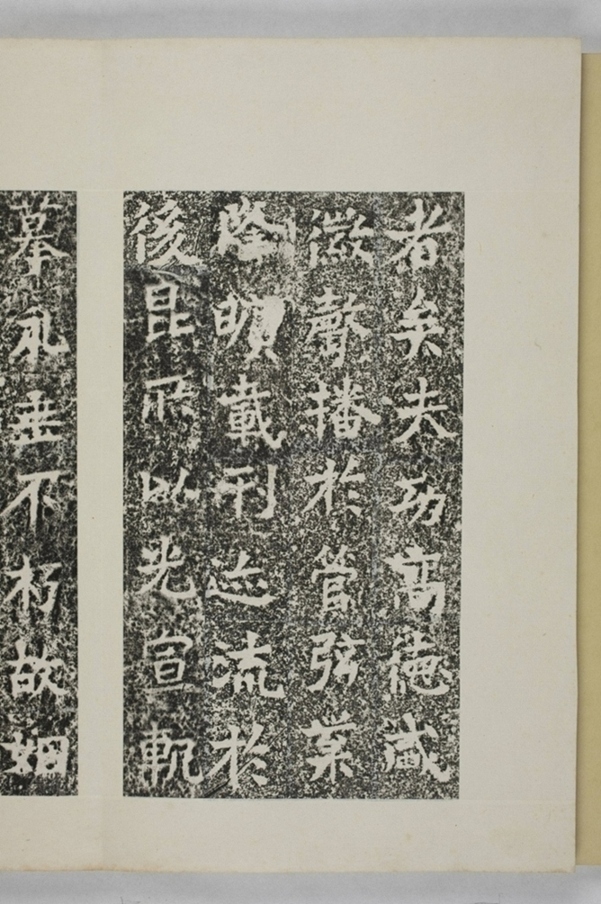 者矣夫功高德盛
徽聲播於管弦業
隆曠載刊迹流於
後昆所以光宣軌
摹永垂不朽故姻